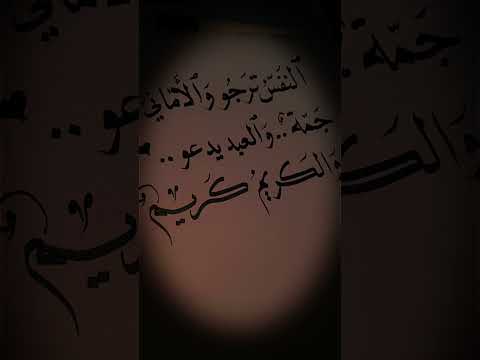 ٱلنَفسُ تَرجُو وَٱلأَمَاني
جَمّة .. وَٱلعبد يدعو ..
وَالكَريمُ كَريم